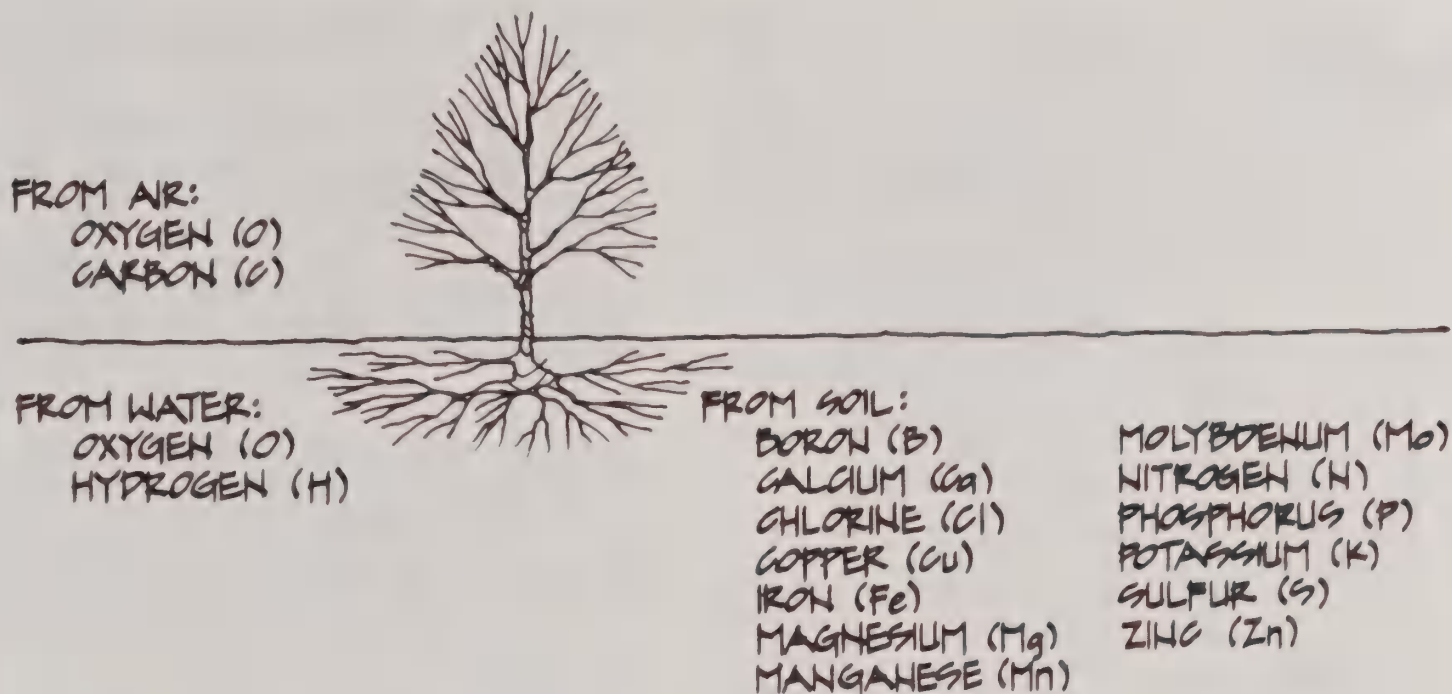 FROM AIR:
OXYGEN (O)
CARBON (C)
FROM WATER:
OXYGEN (O)
HYDROGEN (H)
FROM SOIL:
BORON (B)
CALCIUM (Ca)
CHLORINE (Cl)
COPPER (Cu)
IRON (Fe)
MAGNESIUM (Mg)
MANGANESE (Mn)
MOLYBDENUM (Mo)
NITROGEN (N)
PHOSPHORUS (P)
POTASSIUM (K)
SULFUR (S)
ZINC (Zn)